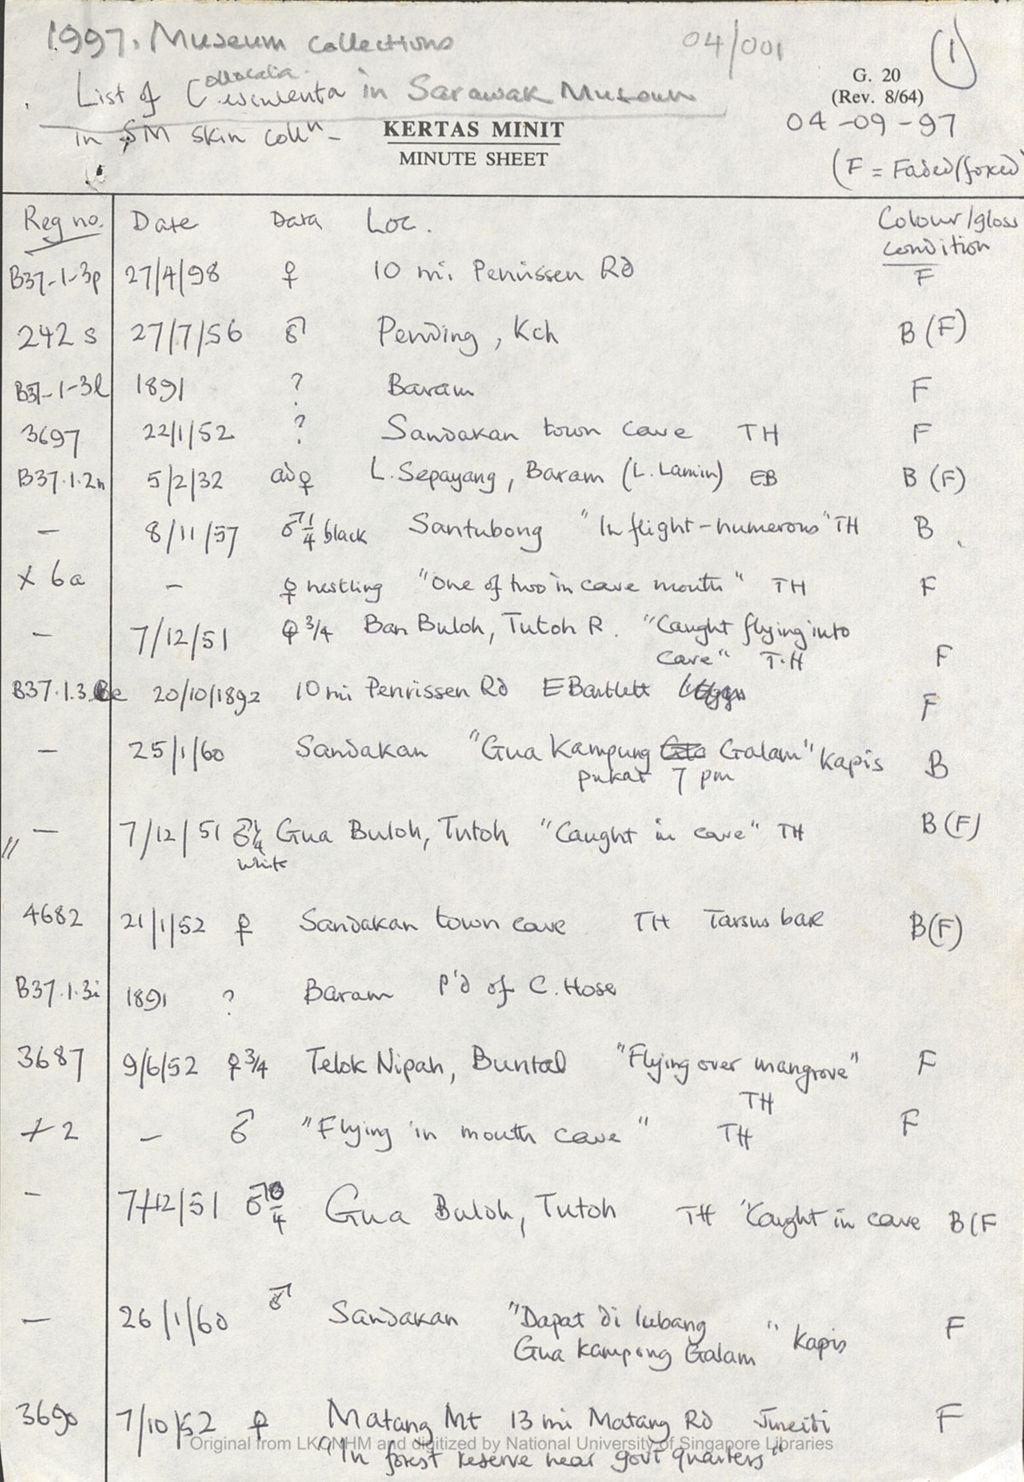 1997. Museum collections 04/001 (1)
List of Collocalia esculenta in Sarawak Museum
in SM skin colln -
G. 20
(Rev. 8/64)
04-09-97
KERTAS MINIT
MINUTE SHEET
(F = Faded/foxed)
Reg no. Date Data Loc. Colour/gloss
condition
B37-1-3p 27/4/98 ♀ 10 mi Penrissen Rd F
242 s 27/7/56 ♂ Pending, Kch B (F)
B37-1-3l 1891 ? Baram F
3697 22/1/52 ? Sandakan town cave TH F
B37.1.2n 5/2/32 ad ♀ L. Sepayang, Baram (L. Lamin) EB B (F)
- 8/11/57 ♂ 1/4 black Santubong "In flight - numerous" TH B
x 6a - ♀ nestling "One of two in cave mouth" TH F
- 7/12/51 ♀ 3/4 Ban Buloh, Tutoh R. "Caught flying into
cave" T.H F
B37.1.3 e 20/10/1892 10 mi Penrissen Rd E Bartlett F
- 25/1/60 Sandakan "Gua Kampung Galam" Kapis B
pukat 7 pm
// - 7/12/51 ♂ 1/4 Gua Buloh, Tutoh "Caught in cave" TH B (F)
white
4682 21/1/52 ♀ Sandakan town cave TH Tarsus bare B(F)
B37.1.3i 1891 ? Baram P'd of C. Hose
3687 9/6/52 ♀ 3/4 Telok Nipah, Buntal "Flying over mangrove" F
TH
+ 2 - ♂ "Flying in mouth cave" TH F
- 7/12/51 ♂ /4 Gua Buloh, Tutoh TH "Caught in cave B(F
- 26/1/60 ♂ Sandakan "Dapat di lubang
Gua Kampong Galam" Kapis F
3690 7/10/52 ♀ Matang Mt 13 mi Matang Rd F
"In forest reserve near govt quarters"
Original from LKCNHM and digitized by National University of Singapore Libraries